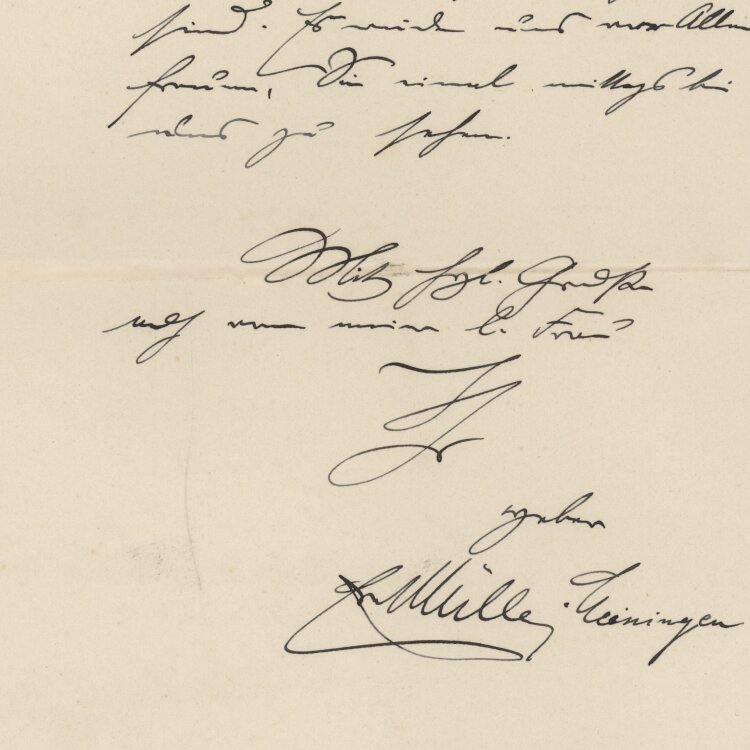 sind. Es würde uns vor Allem
freuen, Sie einmal mittags bei
uns zu sehen.
Mit hzl. Grüßen
auch von meiner l. Frau
Ihr
ergebener
Müller-Meiningen